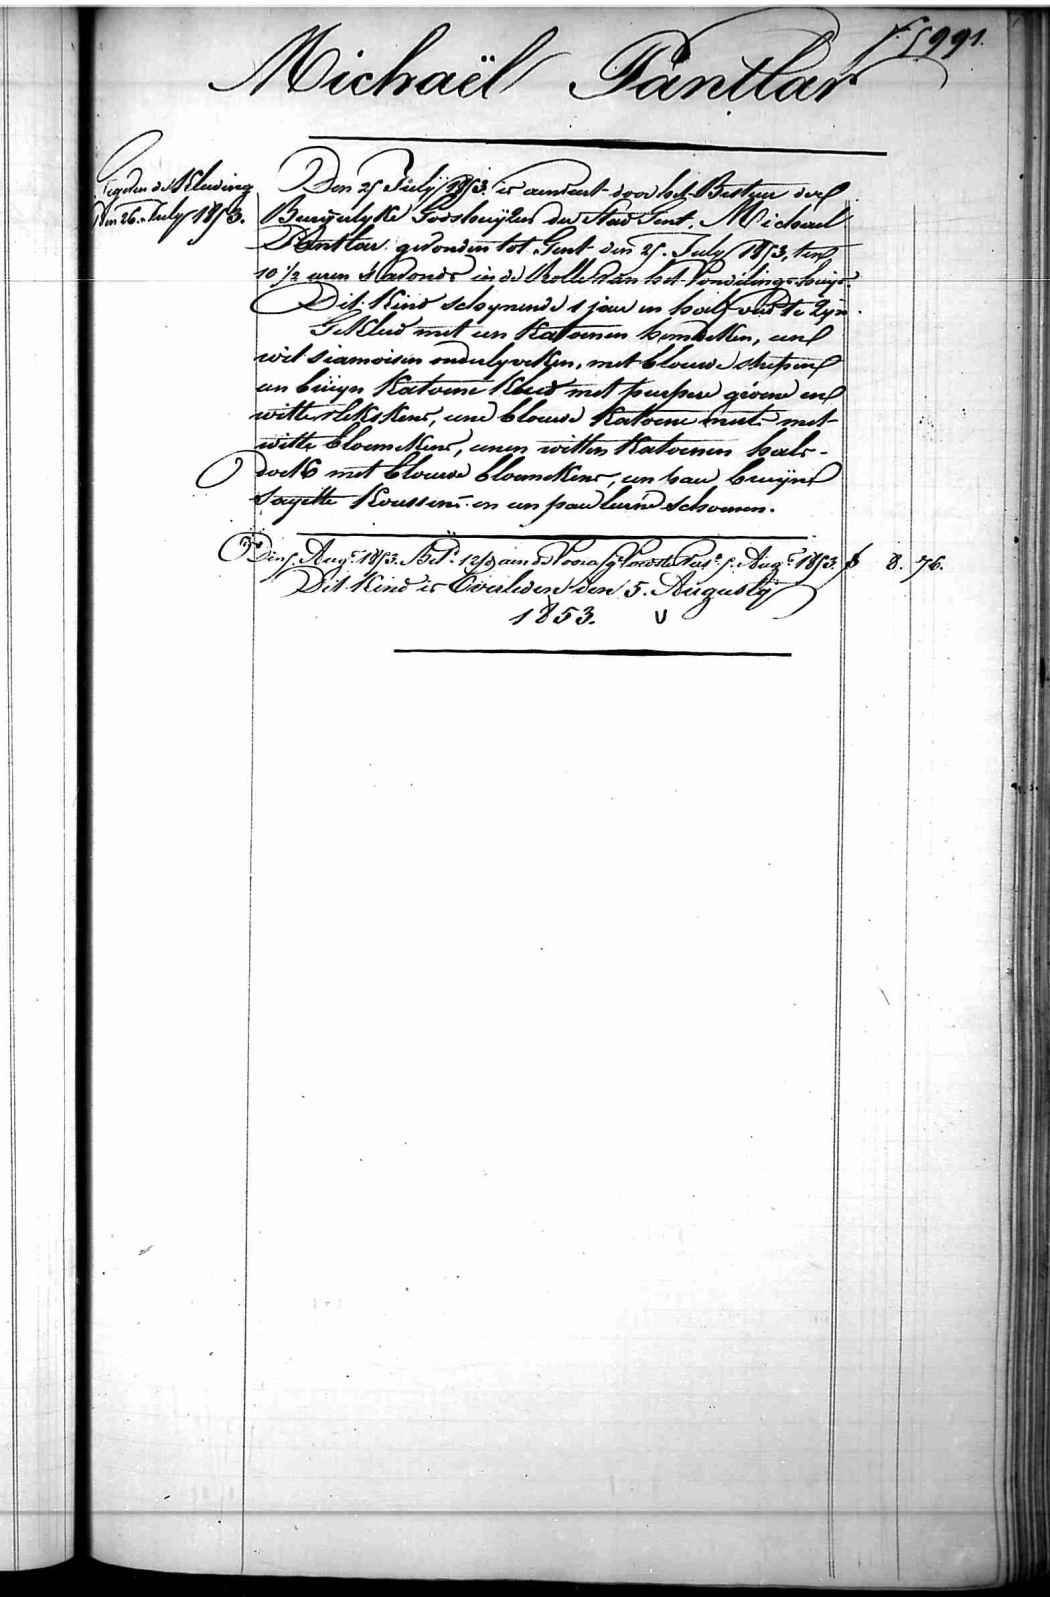 f. 5991.
Michaël Pantlar
gegeven de Kleeding
den 26. July 1853.
Den 25 July 1853. is aanveert door het Bestuer der
Burgerlyke Godshuyzen der Stad Gent, Michaël
Pantlar gevonden tot Gent den 25. July 1853, ten
10 ½ uren s'avonds in de Rolle van het Vondelinge-huys.
Dit Kind schynende 1 jaer en half oud te zyn
Gekleed met een Katoenen hemdeken, een
wit siamoisen onderlyveken, met blouwe strepen
een bruyn Katoene Kleed met purpere groene en
witte vlekskens, eene blouwe Katoene muts met
witte bloemekens, eenen witten Katoenen hals-
doek met blouwe bloemekens, een paer bruyne
Sayette Koussens en een paer leeren schoenen.
Den 5. Aug. 1853. 5. Aug. 1853. f 8. 76.
Dit Kind is Overleden den 5. Augusty
1853.